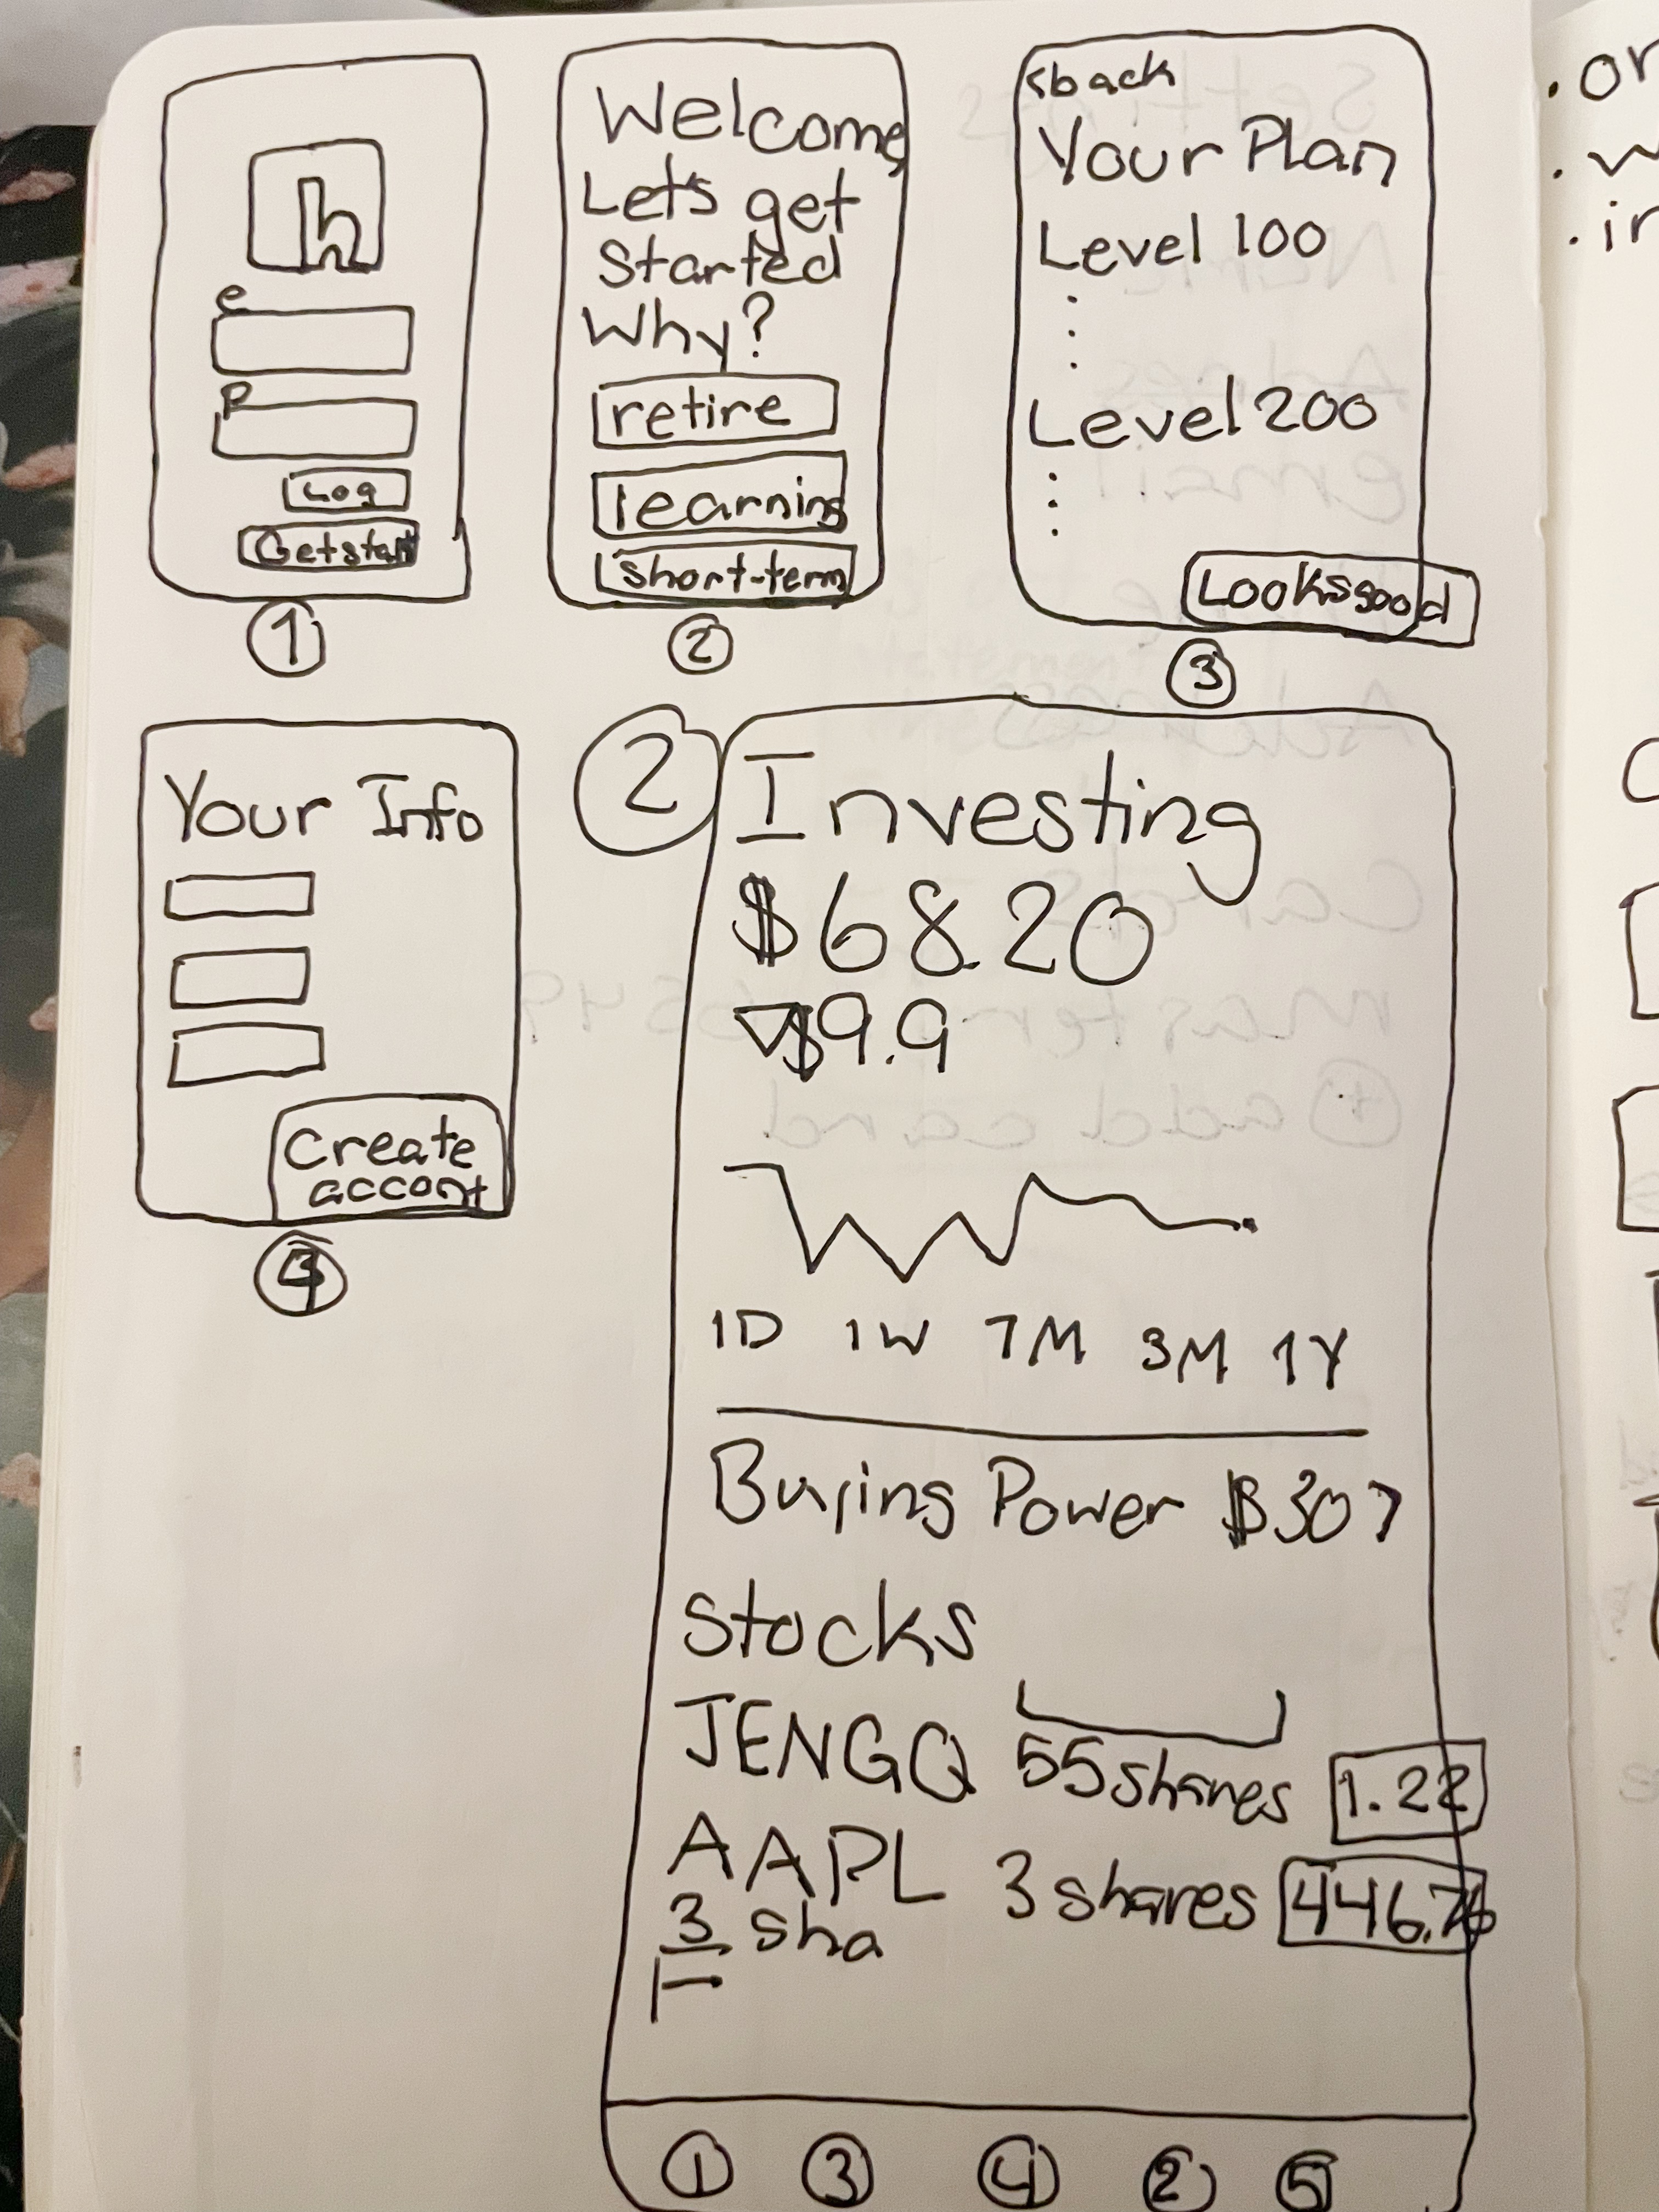 h
e
P
Log
Get start
1
Welcome
Lets get
Started
Why?
retire
learning
short-term
2
<back
Your Plan
Level 100
Level 200
Looks good
3
Your Info
Create
accont
4
2
Investing
$68.20
$9.9
1D 1W 1M 3M 1Y
Buying Power $30 >
Stocks
JENGQ 55 shares 1.22
AAPL 3 shares 446.76
3 sha
1 3 4 2 5